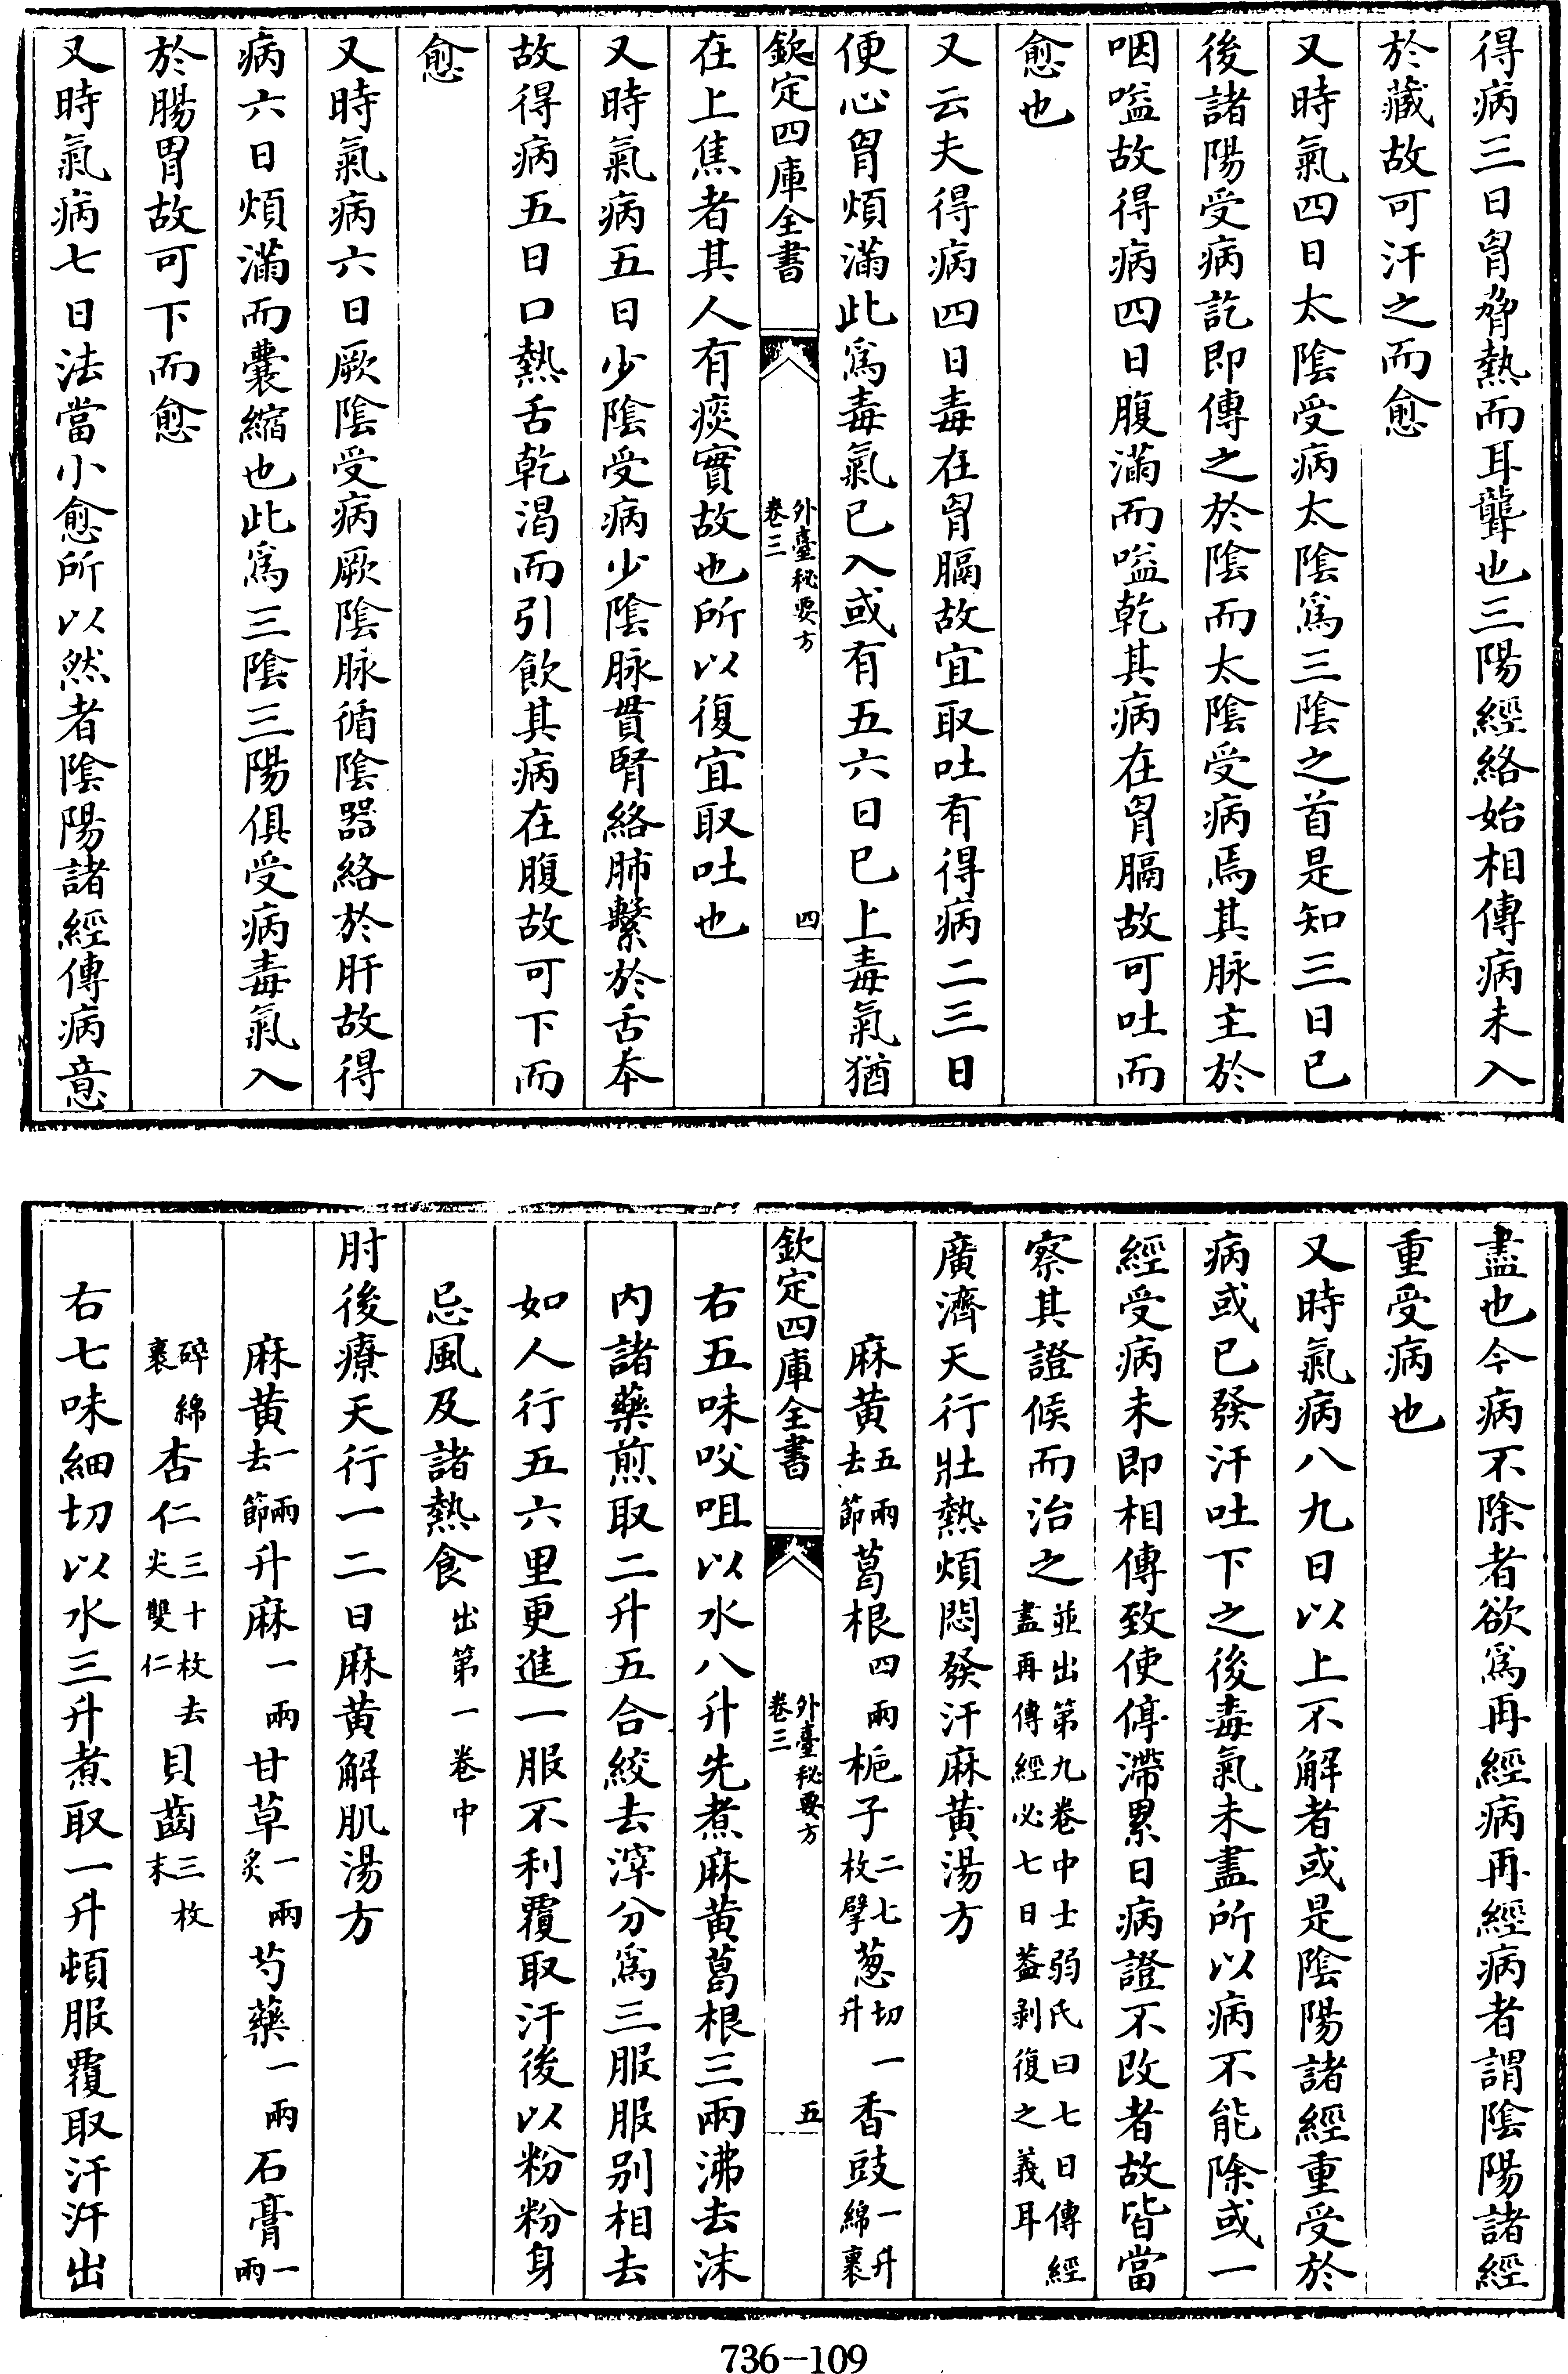 得病三日胷脅熱而耳聾也三陽經絡始相傳病未入
於藏故可汗之而愈
又時氣四日太陰受病太陰爲三陰之首是知三日已
後諸陽受病訖即傳之於陰而太陰受病焉其脉主於
咽嗌故得病四日腹滿而嗌乾其病在胷膈故可吐而
愈也
又云夫得病四日毒在胷膈故宜取吐有得病二三日
便心胷煩滿此爲毒氣已入或有五六日已上毒氣猶
欽定四庫全書
外臺秘要方
卷三
四
在上焦者其人有痰實故也所以復宜取吐也
又時氣病五日少陰受病少陰脉貫腎絡肺繫於舌本
故得病五日口熱舌乾渴而引飲其病在腹故可下而
愈
又時氣病六日厥陰受病厥陰脉循陰器絡於肝故得
病六日煩滿而囊縮也此爲三陰三陽俱受病毒氣入
於腸胃故可下而愈
又時氣病七日法當小愈所以然者陰陽諸經傳病意
盡也今病不除者欲爲再經病再經病者謂陰陽諸經
重受病也
又時氣病八九日以上不解者或是陰陽諸經重受於
病或已發汗吐下之後毒氣未盡所以病不能除或一
經受病未即相傳致使停滯累日病證不改者故皆當
察其證候而治之並出第九卷中士弱氏曰七日傳經盡再傳經必七日葢剥復之義耳
廣濟天行壯熱煩悶發汗麻黄湯方
麻黄五兩去節葛根四兩梔子二七枚擘葱切一升香豉一升綿裹
欽定四庫全書
外臺秘要方
卷三
五
右五味㕮咀以水八升先煮麻黄葛根三兩沸去沫
内諸藥煎取二升五合絞去滓分爲三服服别相去
如人行五六里更進一服不利覆取汗後以粉粉身
忌風及諸熱食出第一卷中
肘後療天行一二日麻黄解肌湯方
麻黄一兩去節升麻一兩甘草一兩炙芍藥一兩石膏一兩
碎綿裹杏仁三十枚去尖雙仁貝齒三枚末
右七味細切以水三升煮取一升頓服覆取汗汗出
736-109